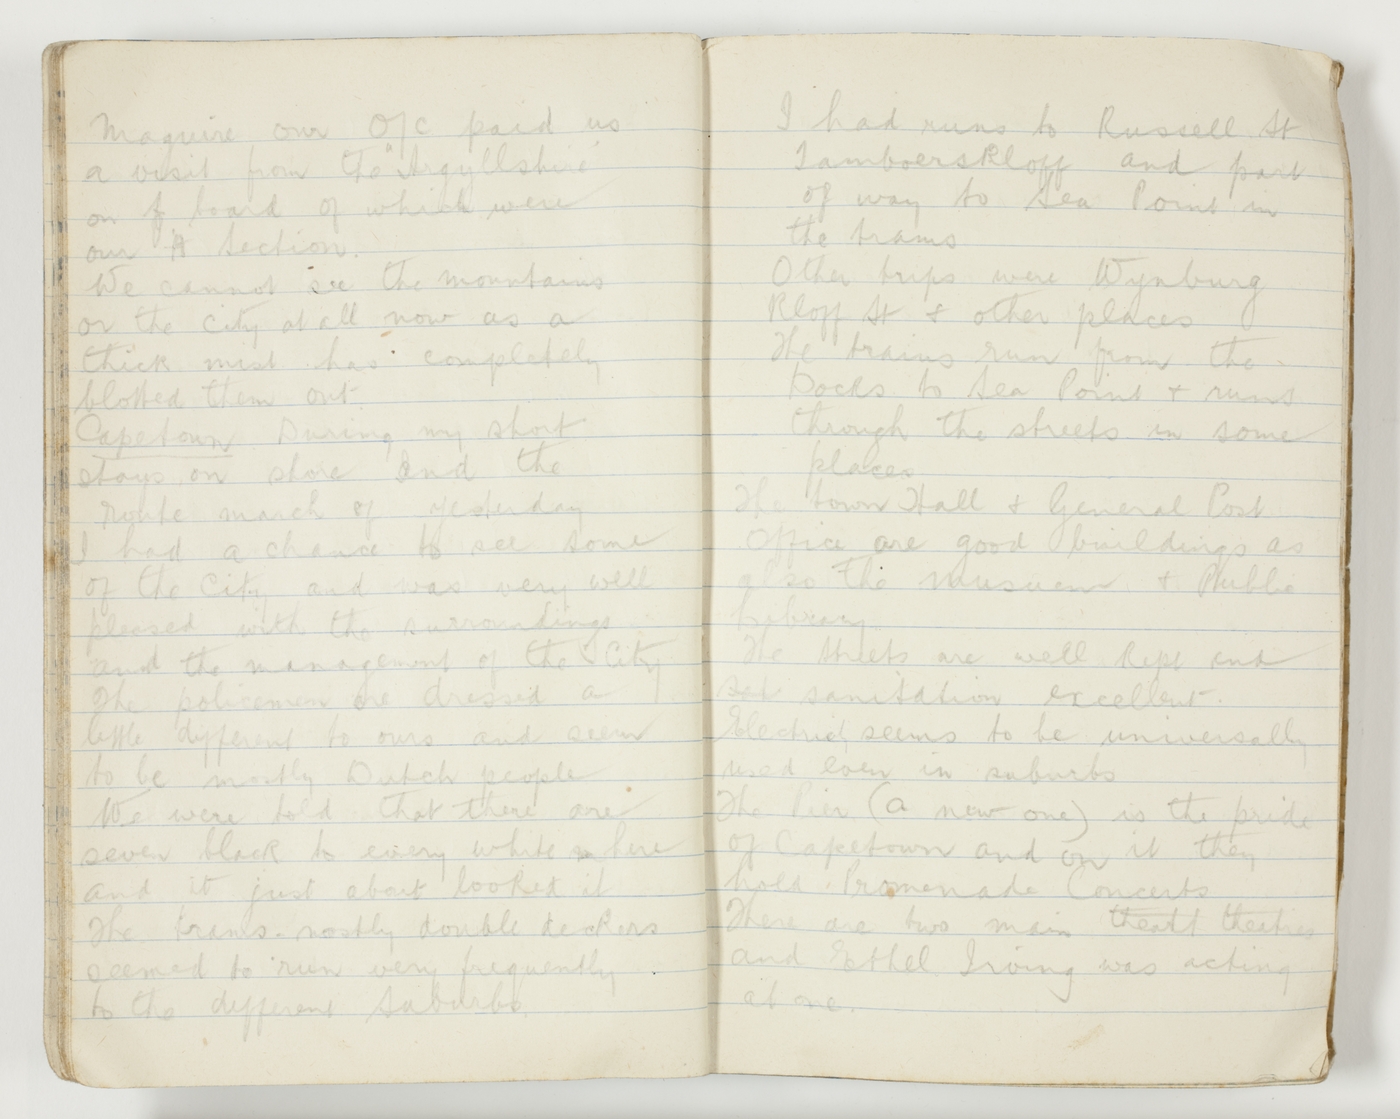 Maguire our O/c paid us
a visit from the "Argyllshire"
on board of which were
our "A" Section.
We cannot see the mountains
or the city at all now as a
thick mist has completely
blotted them out
Capetown During my short
stays on shore and the
route march of yesterday
I had a chance to see some
of the City and was very well
pleased with the surroundings
and the management of the City
The policemen are dressed a
little different to ours and seem
to be mostly Dutch people
We were told that there are
seven black to every white here
and it just about looked it
The trams - mostly double deckers
seemed to run very frequently
to the different Suburbs.
I had runs to Russell St
Tamboerskloff and part
of way to Sea Point in
the trams
Other trips were Wynburg
Kloff St & other places
The trains run from the
Docks to Sea Point & runs
through the streets in some
places
The town Hall & General Post
Office are good buildings as
also the museum & Public
Library
The streets are well kept and
sanitation excellent.
Electricity seems to be universally
used even in suburbs
The Pier (a new one) is the pride
of Capetown and on it they
hold Promenade Concerts
There are two main theatres
and Ethel Irving was acting
at one.